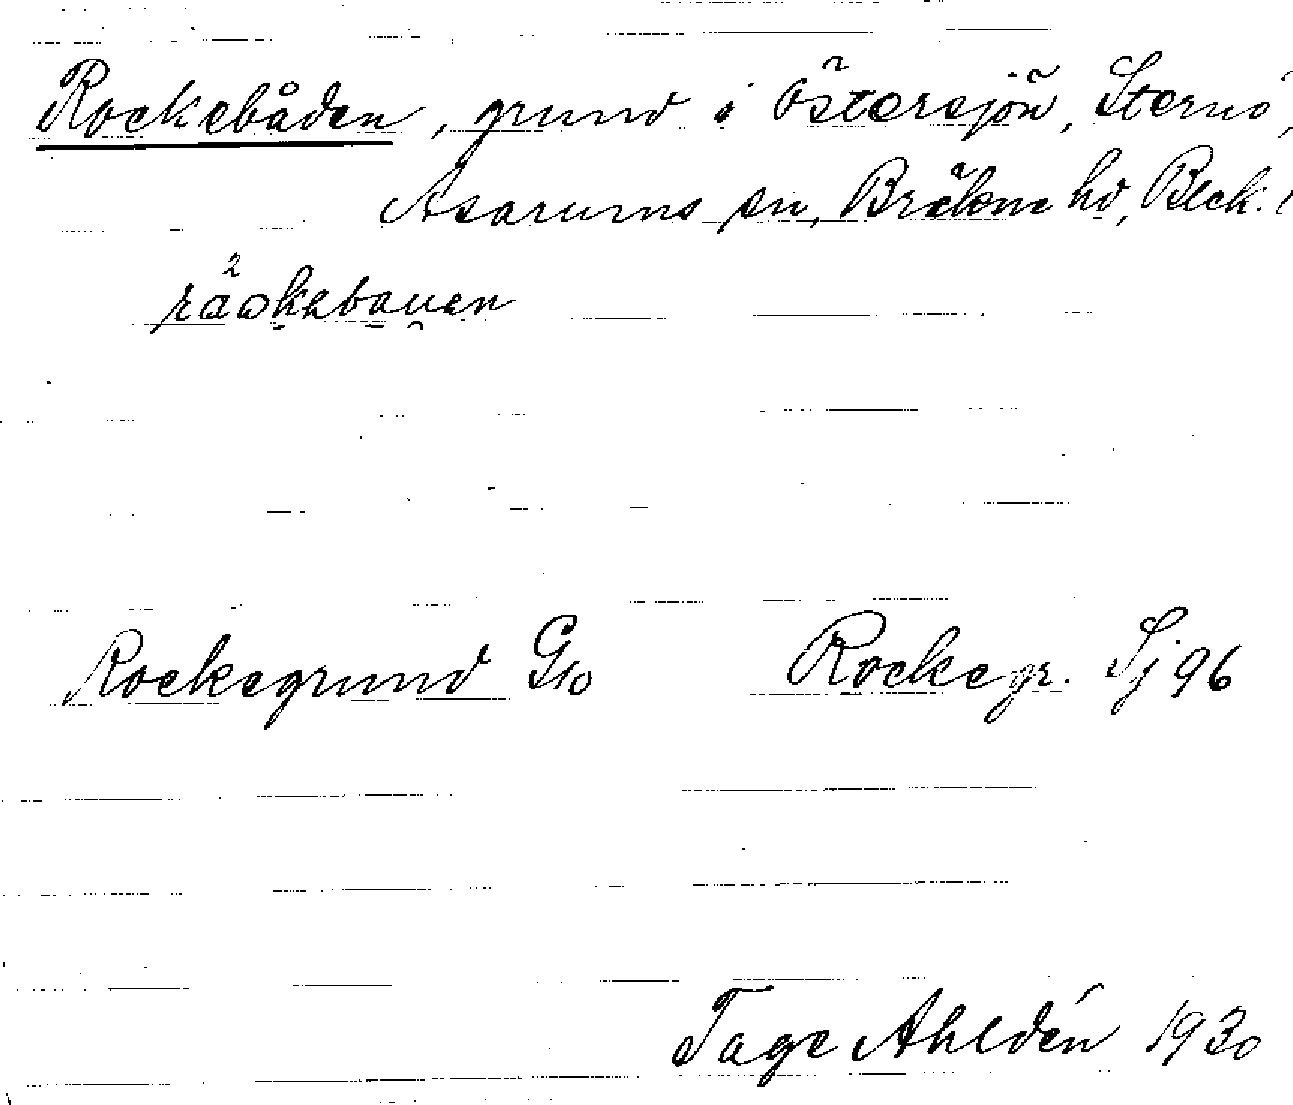 Rockebåden, grund i Östersjön, Sternö,
Asarums sn, Bräkne hd, Blek. l
Rockegrund G10 Rockegr. Sj 96
Tage Ahldén 1930